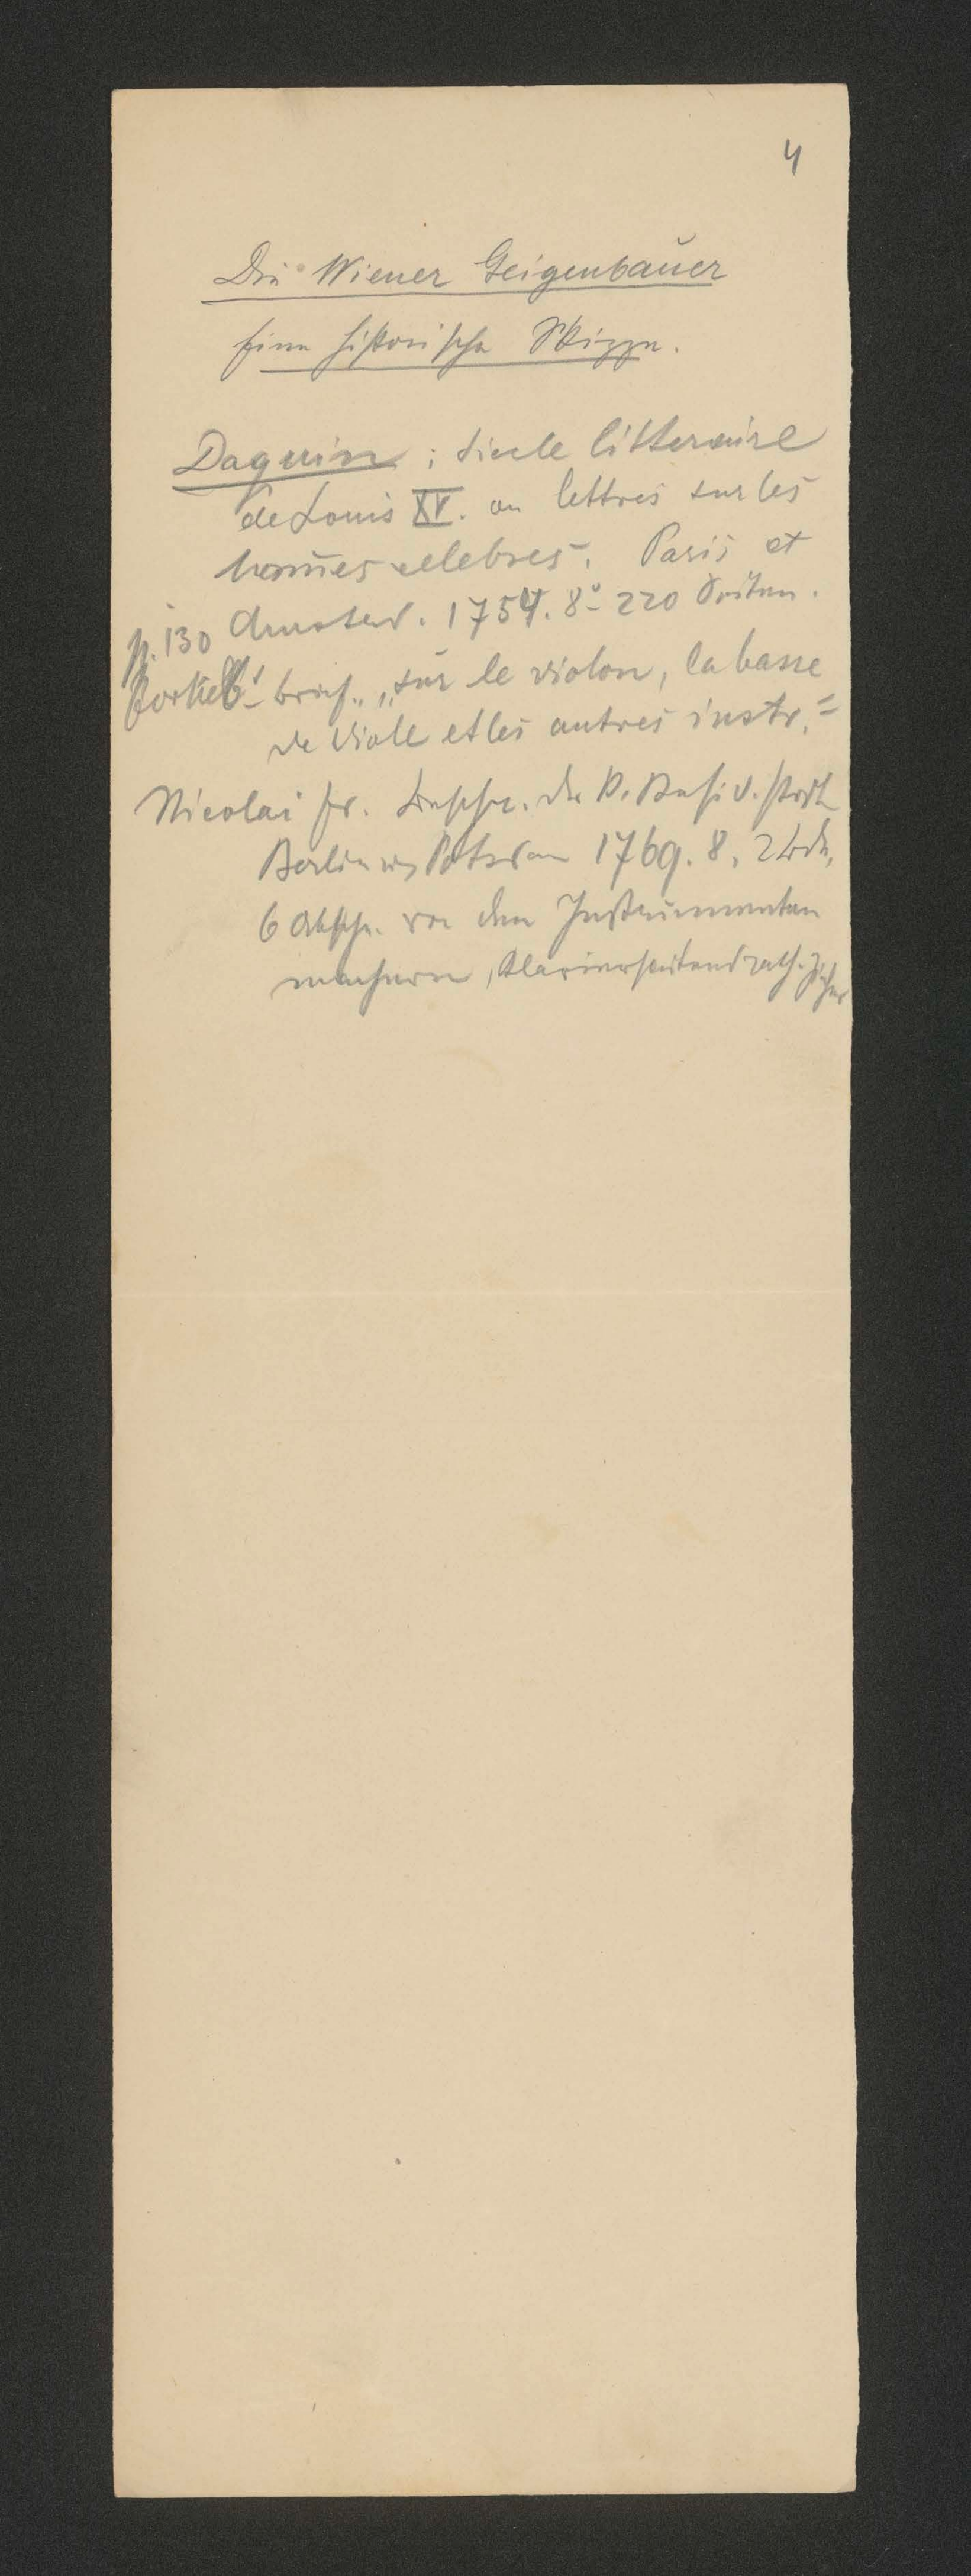 4
Die Wiener Geigenbauer
Eine historische Skizze.
Daquin: Siecle litteraire
de Louis XV. ou lettres sur les
hom̄es celebres. Paris et
Amsterd. 1754. 8° 220 Seiten.
p. 130
Forkel 6. Brief „sur le violon, la basse
de Viole et les autres instr."
Nicolai Fr. Beschr. der K. Resid. stadt
Berlin u. Potsdam 1769. 8. 2 Bde,
6 Abschn. von den Instrumenten
machern, Klaviersaitendrath-Zieher